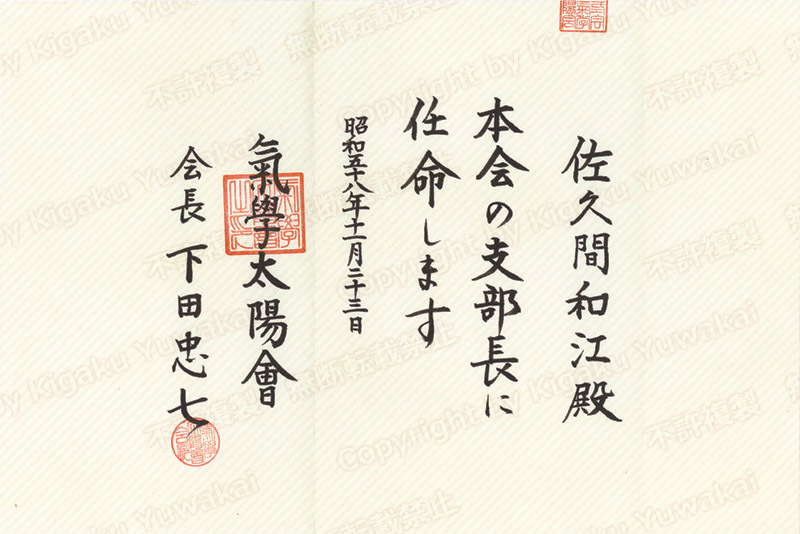 佐久間和江殿
本会の支部長に
任命します
昭和五十八年十一月二十三日
氣學太陽會
会長 下田忠七
不許複製
無断転載禁止
Copyright by Kigaku Yuwakai